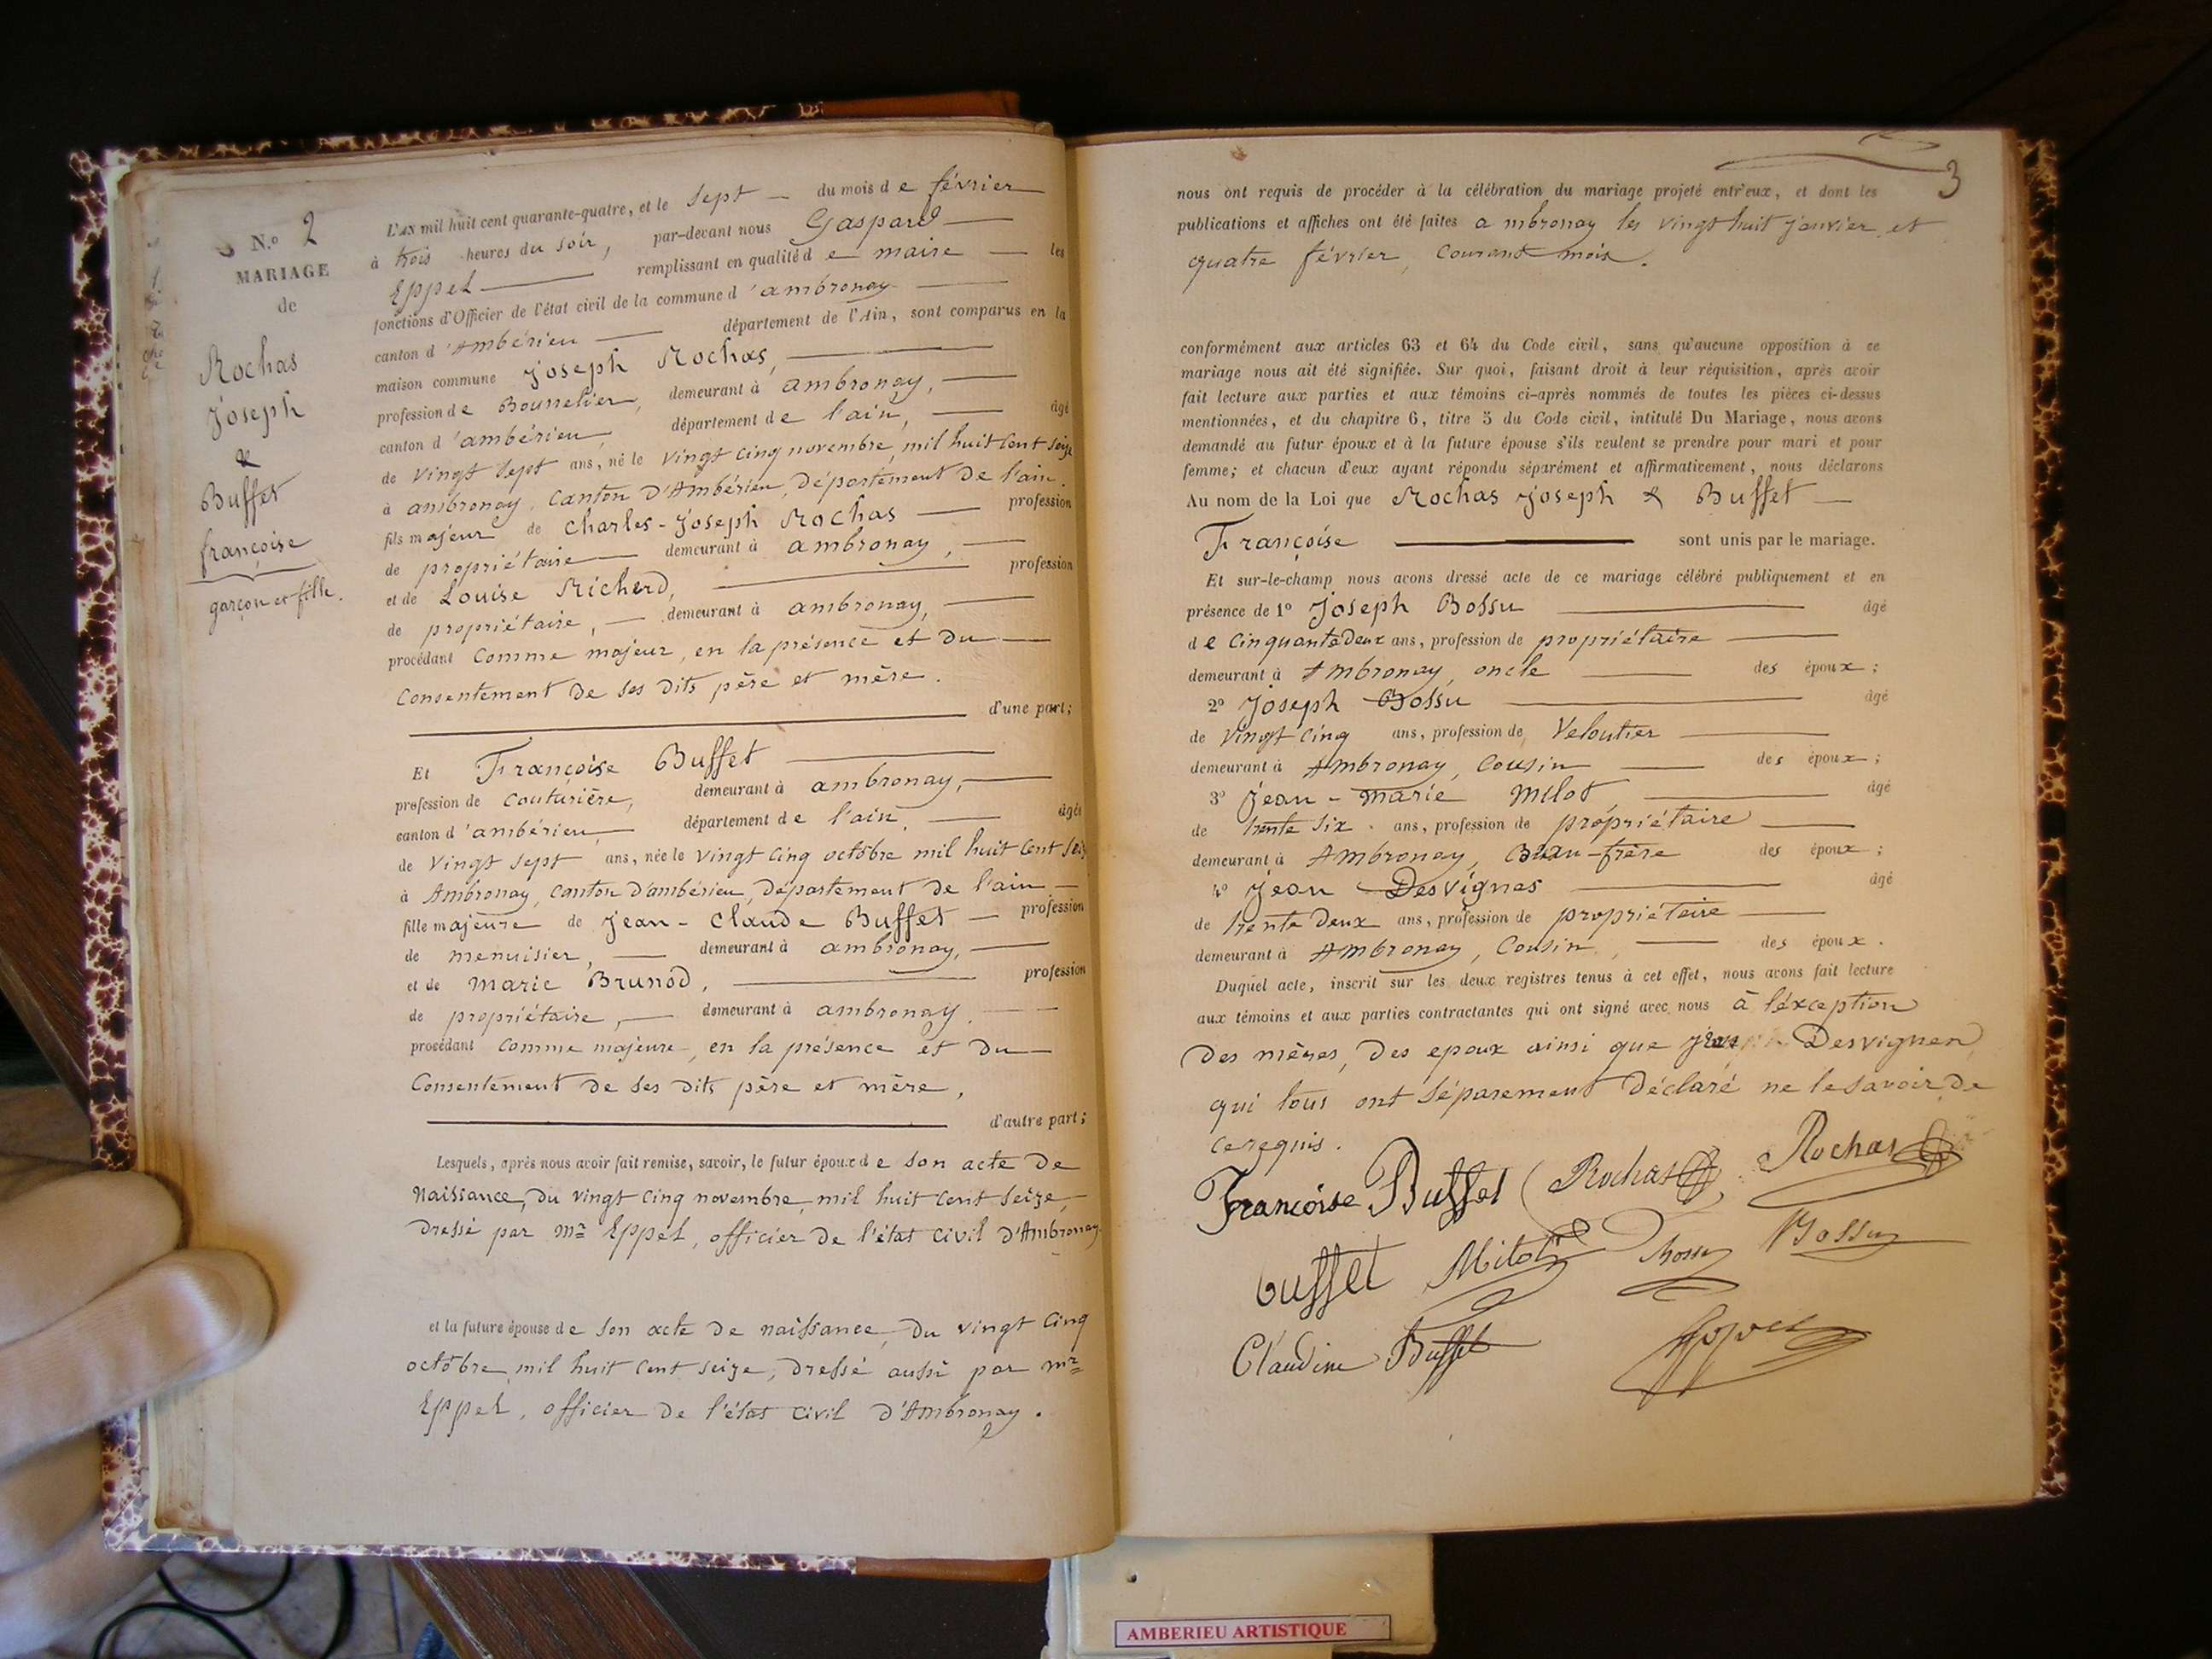 N.º 2
MARIAGE
de
Rochas
Joseph
&
Buffet
françoise
garçon et fille.
L'AN mil huit cent quarante-quatre, et le sept du mois de février
à trois heures du soir, par-devant nous Gaspard
Eppel remplissant en qualité de maire les
fonctions d'Officier de l'état civil de la commune d'ambronay
canton d'Ambérieu département de l'Ain, sont comparus en la
maison commune Joseph Rochas,
profession de Bourrelier, demeurant à ambronay,
canton d'ambérieu, département de l'ain, âgé
de vingt sept ans, né le vingt cinq novembre, mil huit cent seize
à ambronay, canton d'Ambérieu, département de l'ain.
fils majeur de Charles-Joseph Rochas profession
de propriétaire demeurant à ambronay,
et de Louise Richerd, profession
de propriétaire, demeurant à ambronay,
procédant comme majeur, en la présence et du
consentement de ses dits père et mère.
d'une part;
Et Françoise Buffet
profession de couturière, demeurant à ambronay,
canton d'ambérieu, département de l'ain, âgée
de vingt sept ans, née le vingt cinq octobre mil huit cent seize
à Ambronay, canton d'ambérieu, département de l'ain
fille majeure de Jean-Claude Buffet profession
de menuisier, demeurant à ambronay,
et de Marie Brunod, profession
de propriétaire, demeurant à ambronay.
procédant comme majeure, en la présence et du
Consentement de ses dits père et mère,
d'autre part;
Lesquels, après nous avoir fait remise, savoir, le futur époux de son acte de
naissance, du vingt cinq novembre, mil huit cent seize,
dressé par Mr Eppel, officier de l'état civil d'Ambronay
et la future épouse de son acte de naissance, du vingt cinq
octobre mil huit cent seize, dressé aussi par mr
Eppel, officier de l'état civil d'Ambronay.
3
nous ont requis de procéder à la célébration du mariage projeté entr'eux, et dont les
publications et affiches ont été faites a mbronay les vingt huit janvier, et
quatre février, courant mois.
conformément aux articles 63 et 64 du Code civil, sans qu'aucune opposition à ce
mariage nous ait été signifiée. Sur quoi, faisant droit à leur réquisition, après avoir
fait lecture aux parties et aux témoins ci-après nommés de toutes les pièces ci-dessus
mentionnées, et du chapitre 6, titre 5 du Code civil, intitulé Du Mariage, nous avons
demandé au futur époux et à la future épouse s'ils veulent se prendre pour mari et pour
femme; et chacun d'eux ayant répondu séparément et affirmativement, nous déclarons
Au nom de la Loi que Rochas Joseph & Buffet
Françoise sont unis par le mariage.
Et sur-le-champ nous avons dressé acte de ce mariage célébré publiquement et en
présence de 1º Joseph Bossu âgé
de cinquante deux ans, profession de propriétaire
demeurant à Ambronay, oncle des époux;
2º Joseph Bossu âgé
de vingt cinq ans, profession de Veloutier
demeurant à Ambronay, Cousin des époux;
3º Jean-Marie Milot âgé
de trente six ans, profession de propriétaire
demeurant à Ambronay, Beau-frère des époux;
4º Jean Desvignes âgé
de trente deux ans, profession de propriétaire
demeurant à Ambronay, Cousin, des époux.
Duquel acte, inscrit sur les deux registres tenus à cet effet, nous avons fait lecture
aux témoins et aux parties contractantes qui ont signé avec nous à l'éxception
des mères, des epoux ainsi que jean Desvignes
qui tous ont séparement déclaré ne le savoir de
ce requis.
Françoise Buffet Rochas Rochas
buffet Milot Bossu Bossu
Claudine Buffet Eppel
AMBERIEU ARTISTIQUE